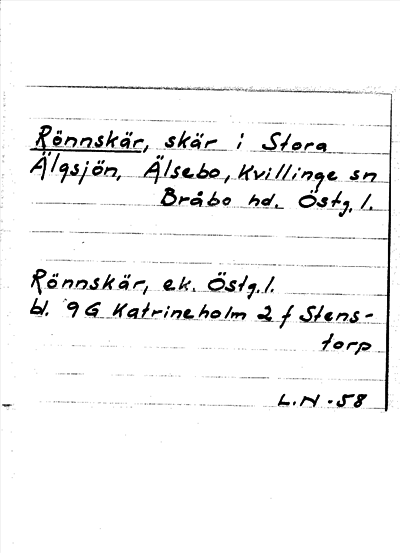 Rönnskär, skär i Stora
Älgsjön, Älsebo, Kvillinge sn
Bråbo hd. Östg. l.
Rönnskär, ek. Östg. l.
bl. 9G Katrineholm 2 f Stens-
torp
L.N - 58